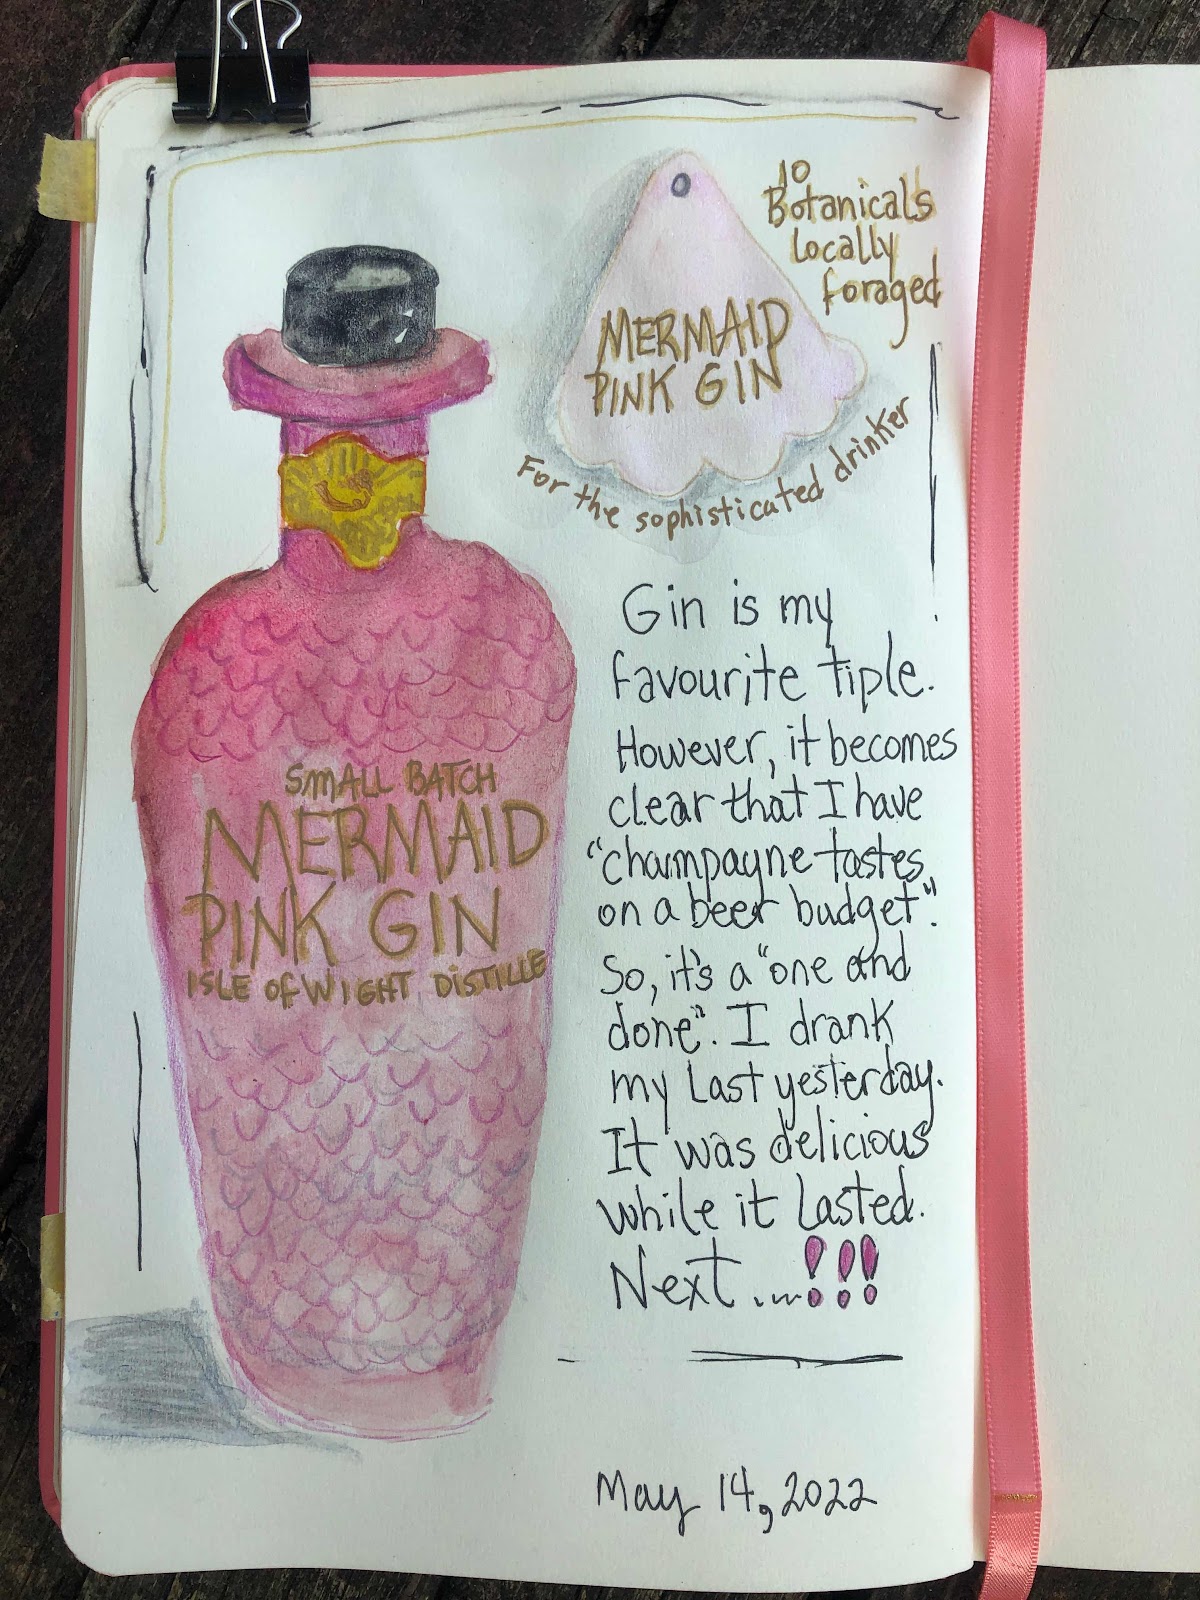 10
Botanicals
Locally
foraged
MERMAID
PINK GIN
For the sophisticated drinker
SMALL BATCH
MERMAID
PINK GIN
ISLE OF WIGHT DISTILLE
Gin is my
favourite tiple.
However, it becomes
clear that I have
"champagne tastes
on a beer budget".
So, it's a "one and
done". I drank
my Last yesterday.
It was delicious
while it Lasted.
Next....!!!
May 14, 2022